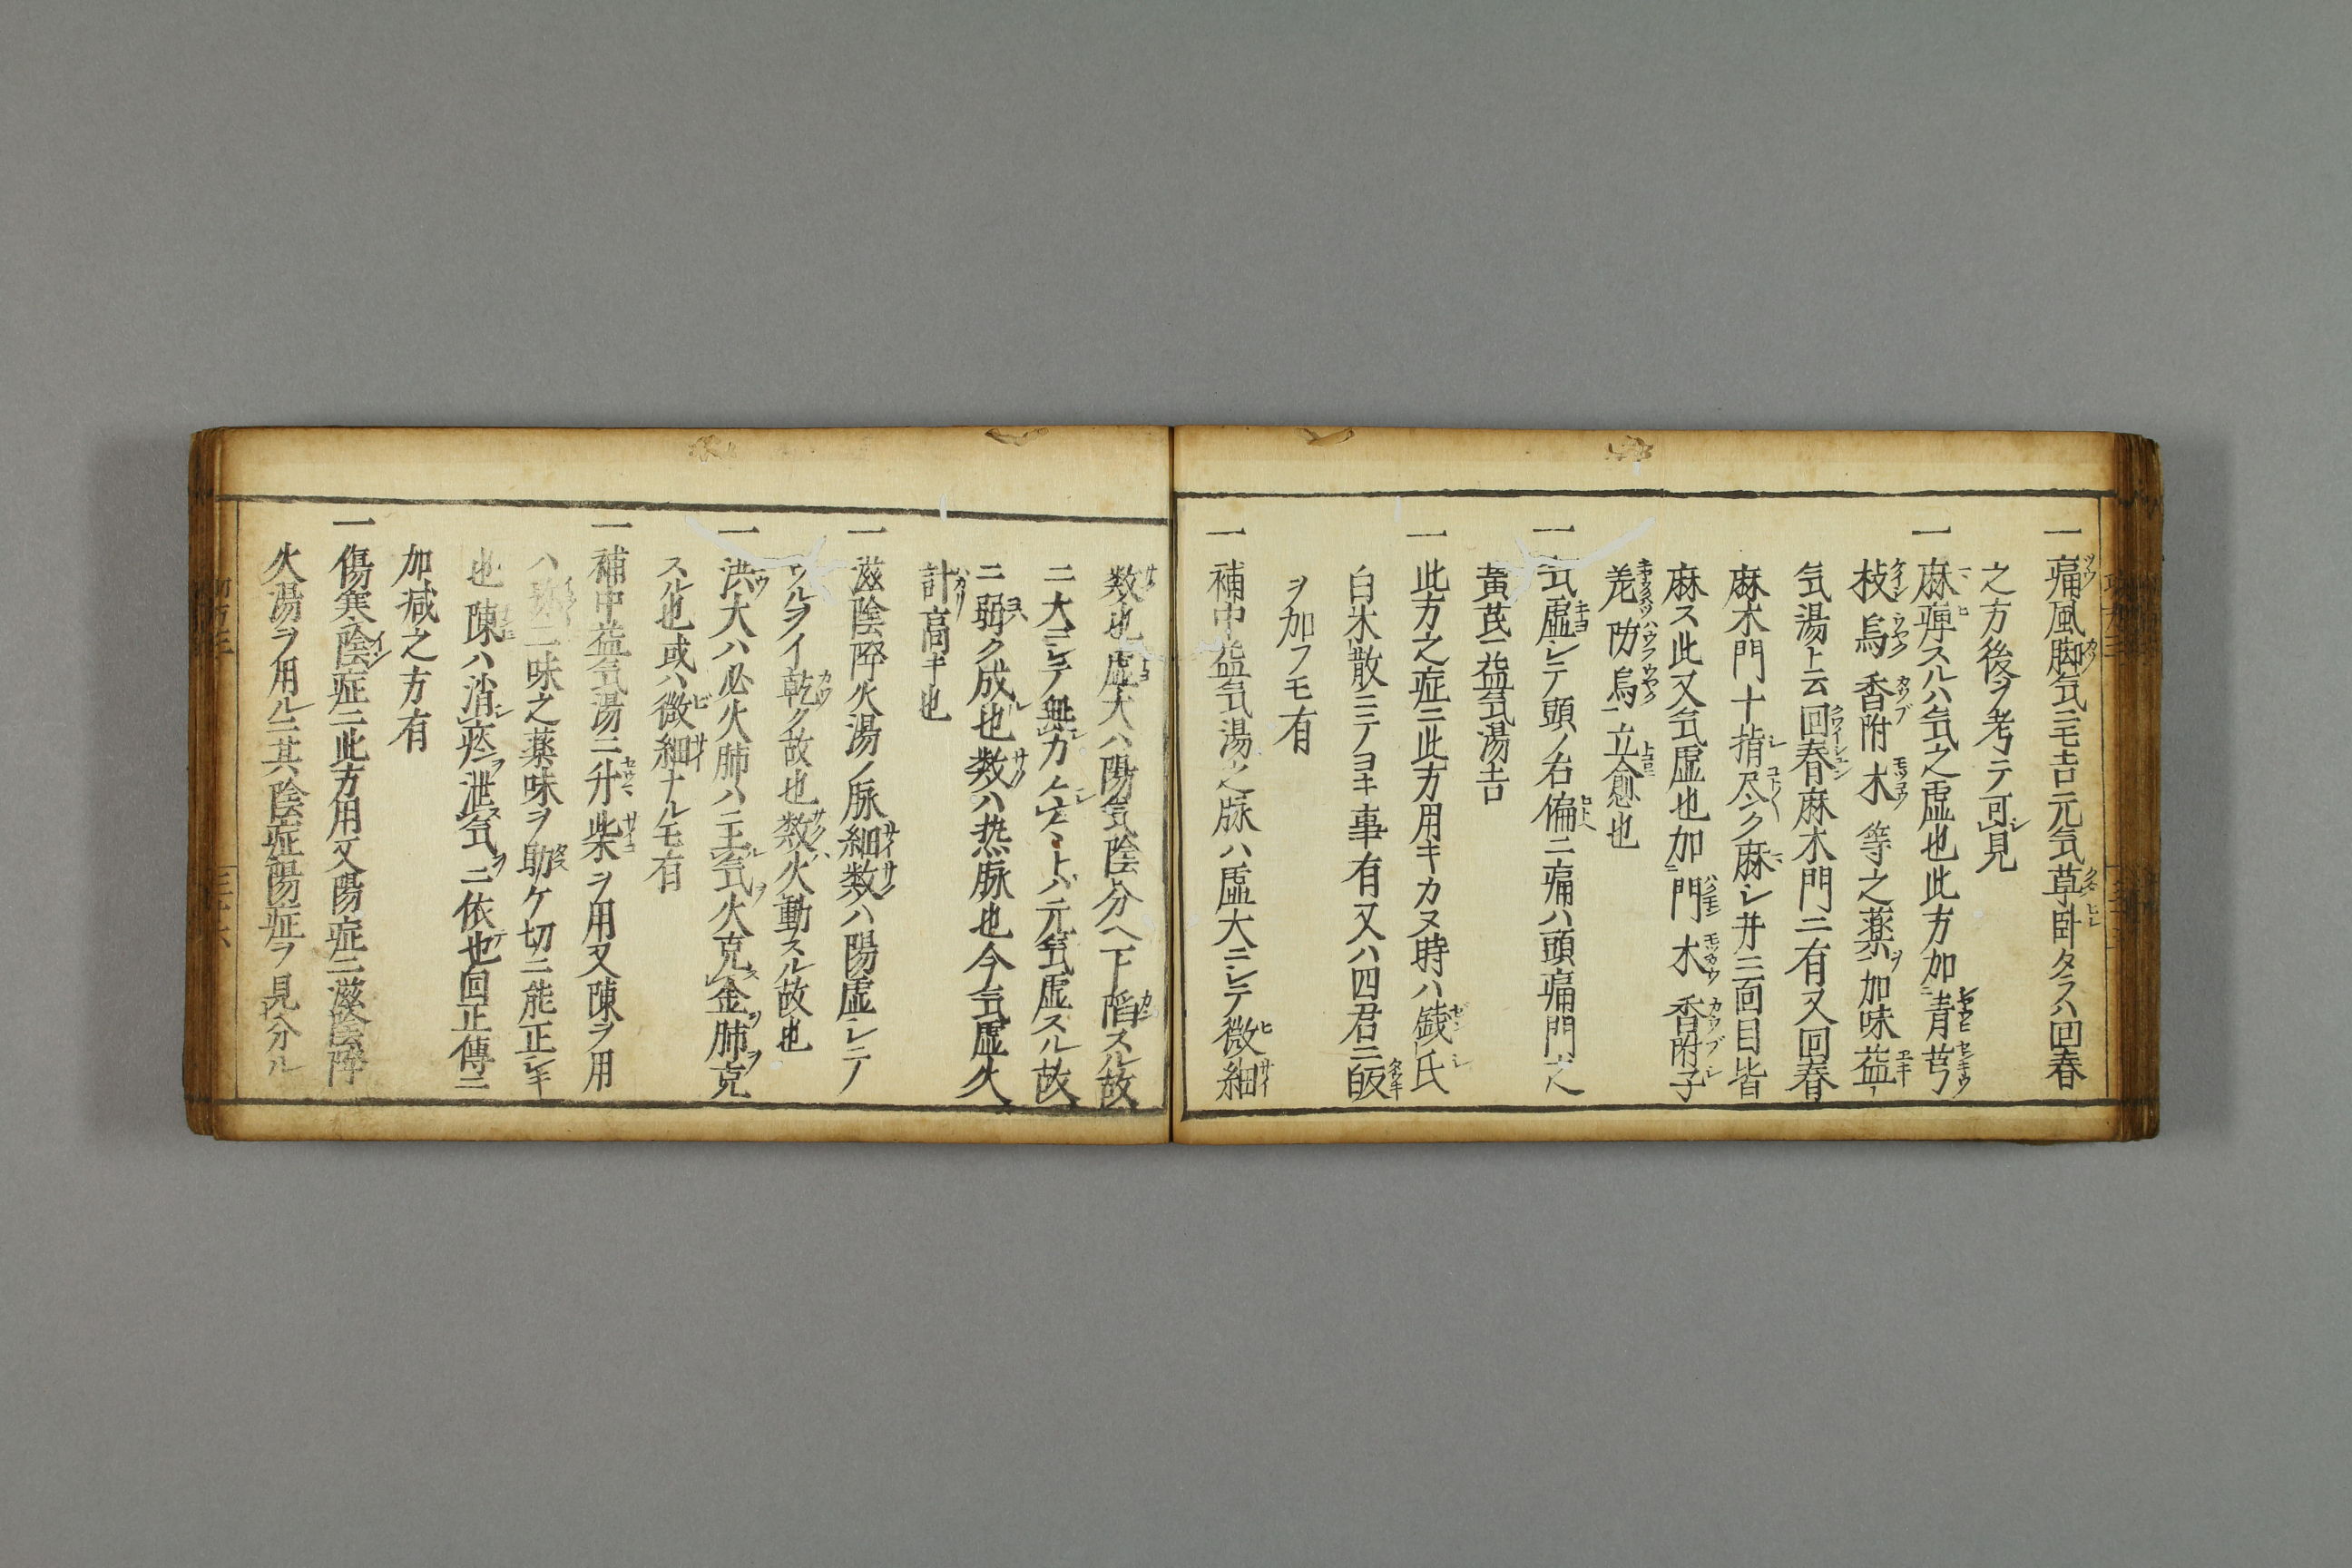 一痛風脚気ニモ吉元気草臥タラハ回春
之方後ヲ考テ可見
一麻痺スルハ気之虚也此方加青芎
枝烏香附木等之薬加味益
気湯ト云回春麻木門ニ有又回春
麻木門十指尽ク麻シ并ニ面目皆
麻ス此又気虚也加門木香附子
羌防烏立愈也
一気虚シテ頭ノ右偏ニ痛ハ頭痛門之
黄芪益気湯吉
一此方之症ニ此方用キカヌ時ハ銭氏
白朮散ニテヨキ事有又ハ四君ニ
ヲ加フモ有
一補中益気湯之脉ハ虚大ニシテ微細
数也虚大ハ陽気陰分ヘ下陥スル故
ニ大ニシテ無力ハ元気虚スル故
ニ弱ク成也数ハ热脉也今気虚火
計高キ也
一滋陰降火湯ノ脉細数ハ陽虚シテノ
ウルヲイ乾ク故也数ハ火動スル故也
一洪大ハ必火肺ハ主気火克金肺ヲ克
スル也或ハ微細ナルモ有
一補中益気湯ニ升柴ヲ用又陳ヲ用
ハ二味之薬味ヲ助ケ切ニ能正シキ
也陳ハ消痰泄気ニ依也回正傳ニ
加减之方有
一傷寒陰症ニ此方用又陽症ニ滋陰降
火湯ヲ用ル其陰症陽症ヲ見分ル